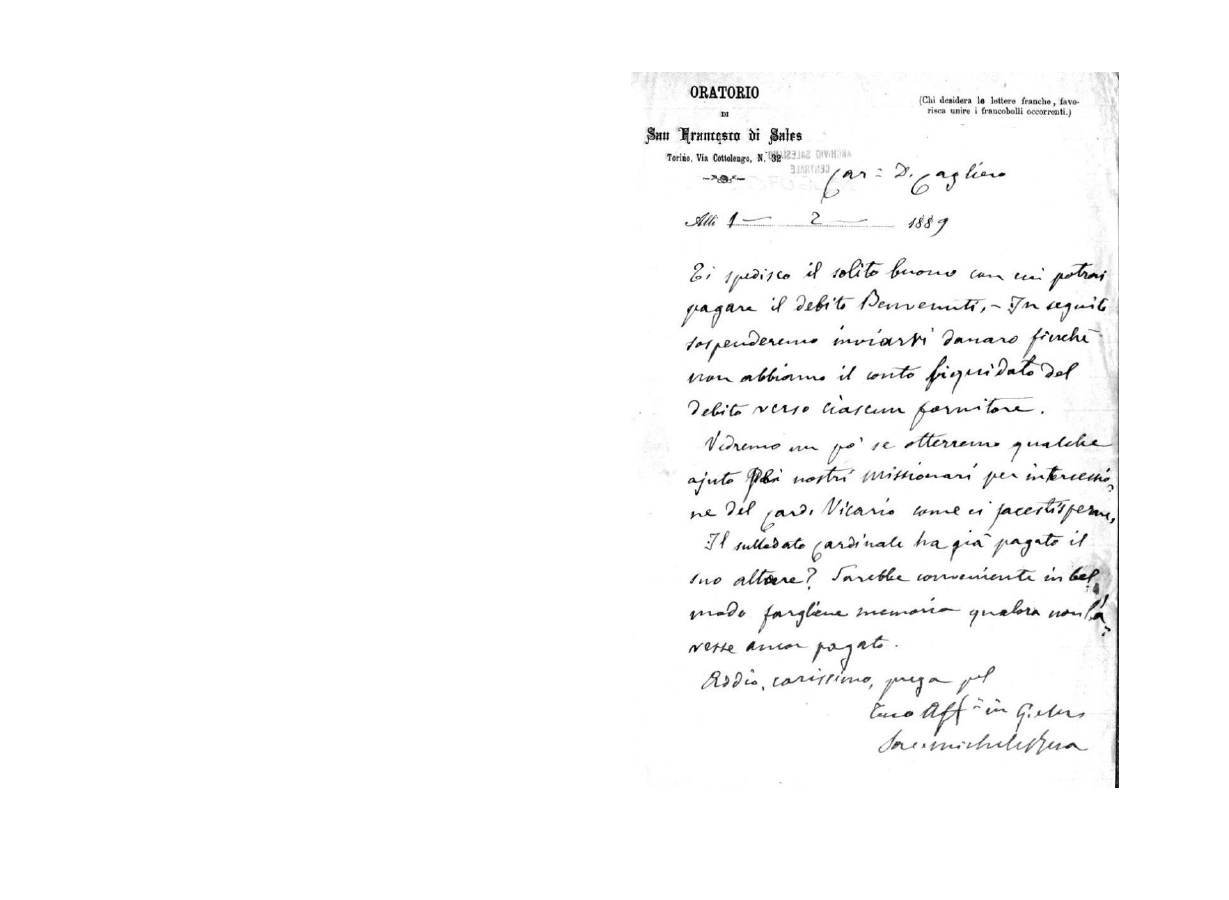 ORATORIO
DI
San Francesco di Sales
Torino, Via Cottolengo, N. 32
(Chi desidera le lettere franche, favo-
risca unire i francobolli occorrenti.)
ARCHIVIO SALESIANO
CENTRALE
Car= D. Cagliero
Alli 1 — 2 — 1889
Ti spedisco il solito buono con cui potrai
pagare il debito Benvenuti, – In seguito
sospenderemo inviarti danaro finchè
non abbiamo il conto liquidato del
debito verso ciascun fornitore.
Vedremo un pò se otterremo qualche
ajuto pei nostri missionari per intercessio,
ne del Card. Vicario come ci facesti sperare,
Il sullodato Cardinale ha già pagato il
suo altare? Sarebbe conveniente in bel
modo fargliene memoria qualora non l'a,
vesse ancor pagato.
Addio, carissimo, prega pel
tuo Aff in G. e
Sac. Michele Rua